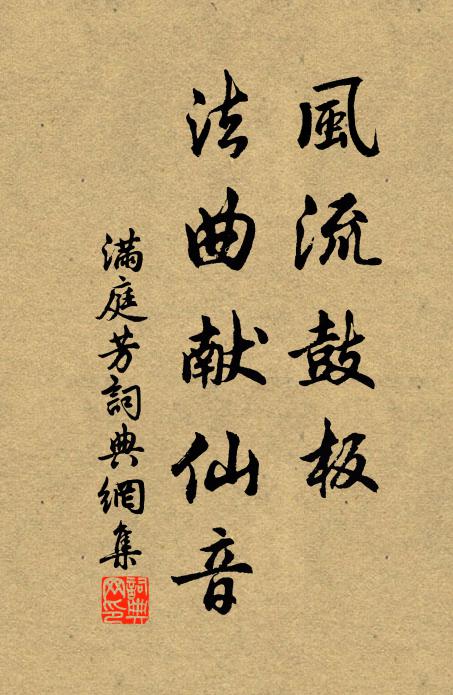 風流鼓板
法曲献仙音
满庭芳詞典網集
詞典
网印